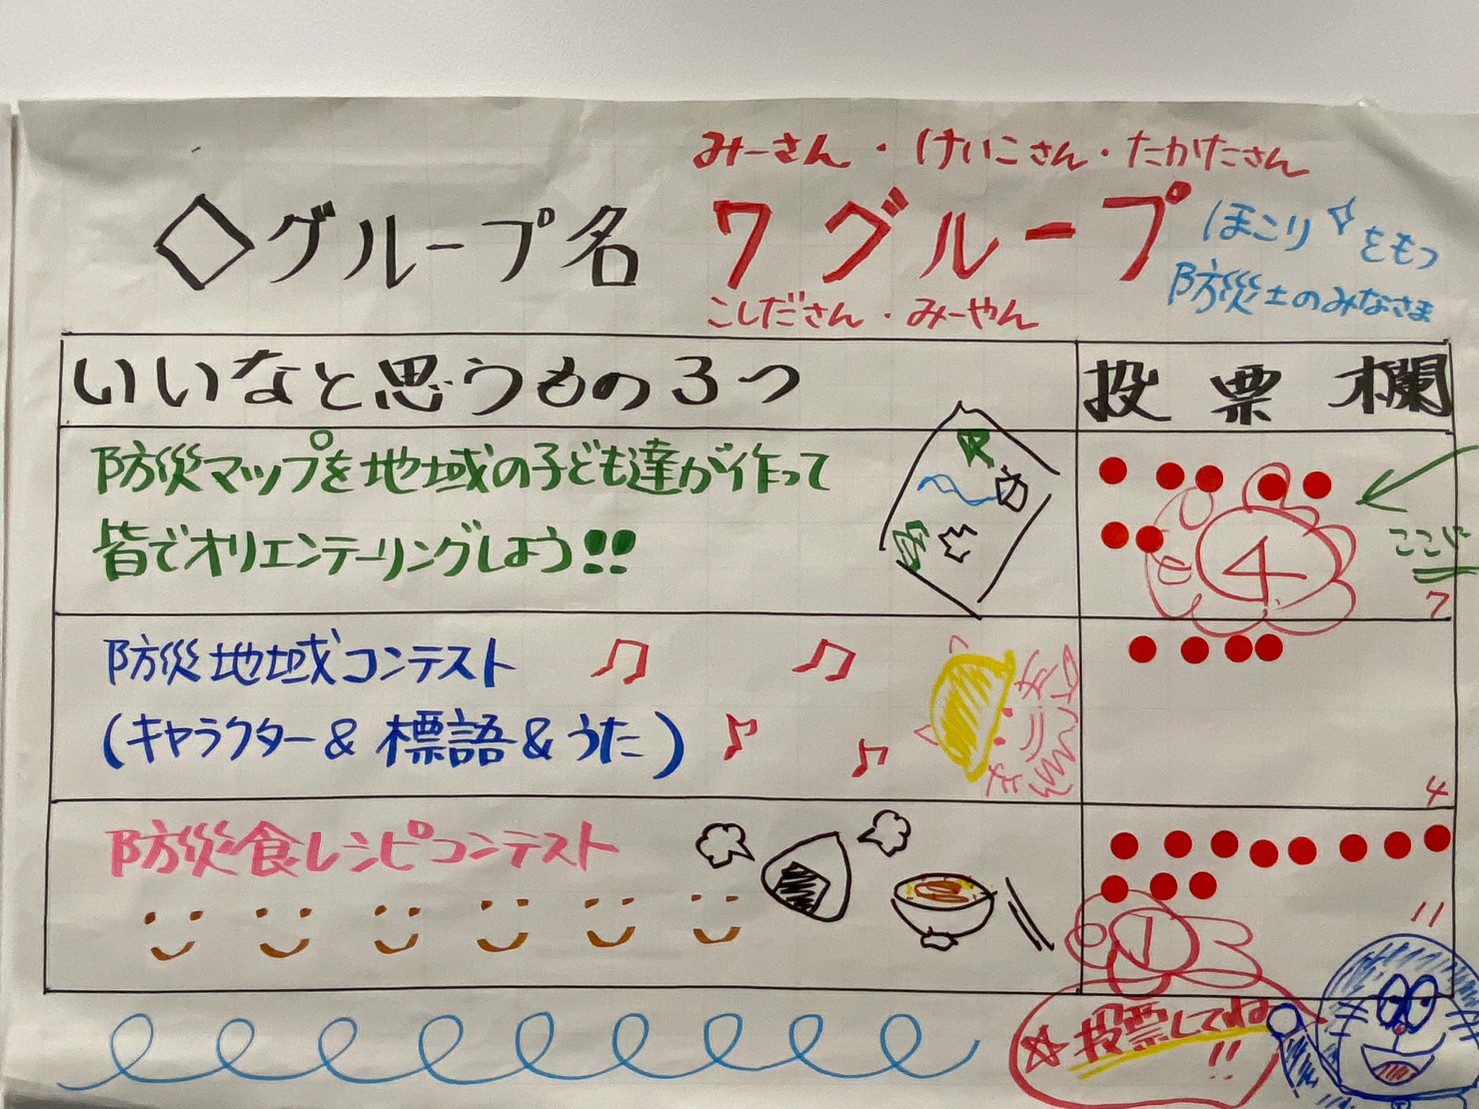 みーさん・けいこさん・たかたさん
◇グループ名 7グループ
ほこりをもつ
防災士のみなさま
こしださん・みーやん
いいなと思うもの3つ
投票欄
防災マップを地域の子ども達が作って
皆でオリエンテーリングしよう!!
4
7
防災地域コンテスト
(キャラクター&標語&うた)
4
防災食レシピコンテスト
1
11
☆投票してね
!!